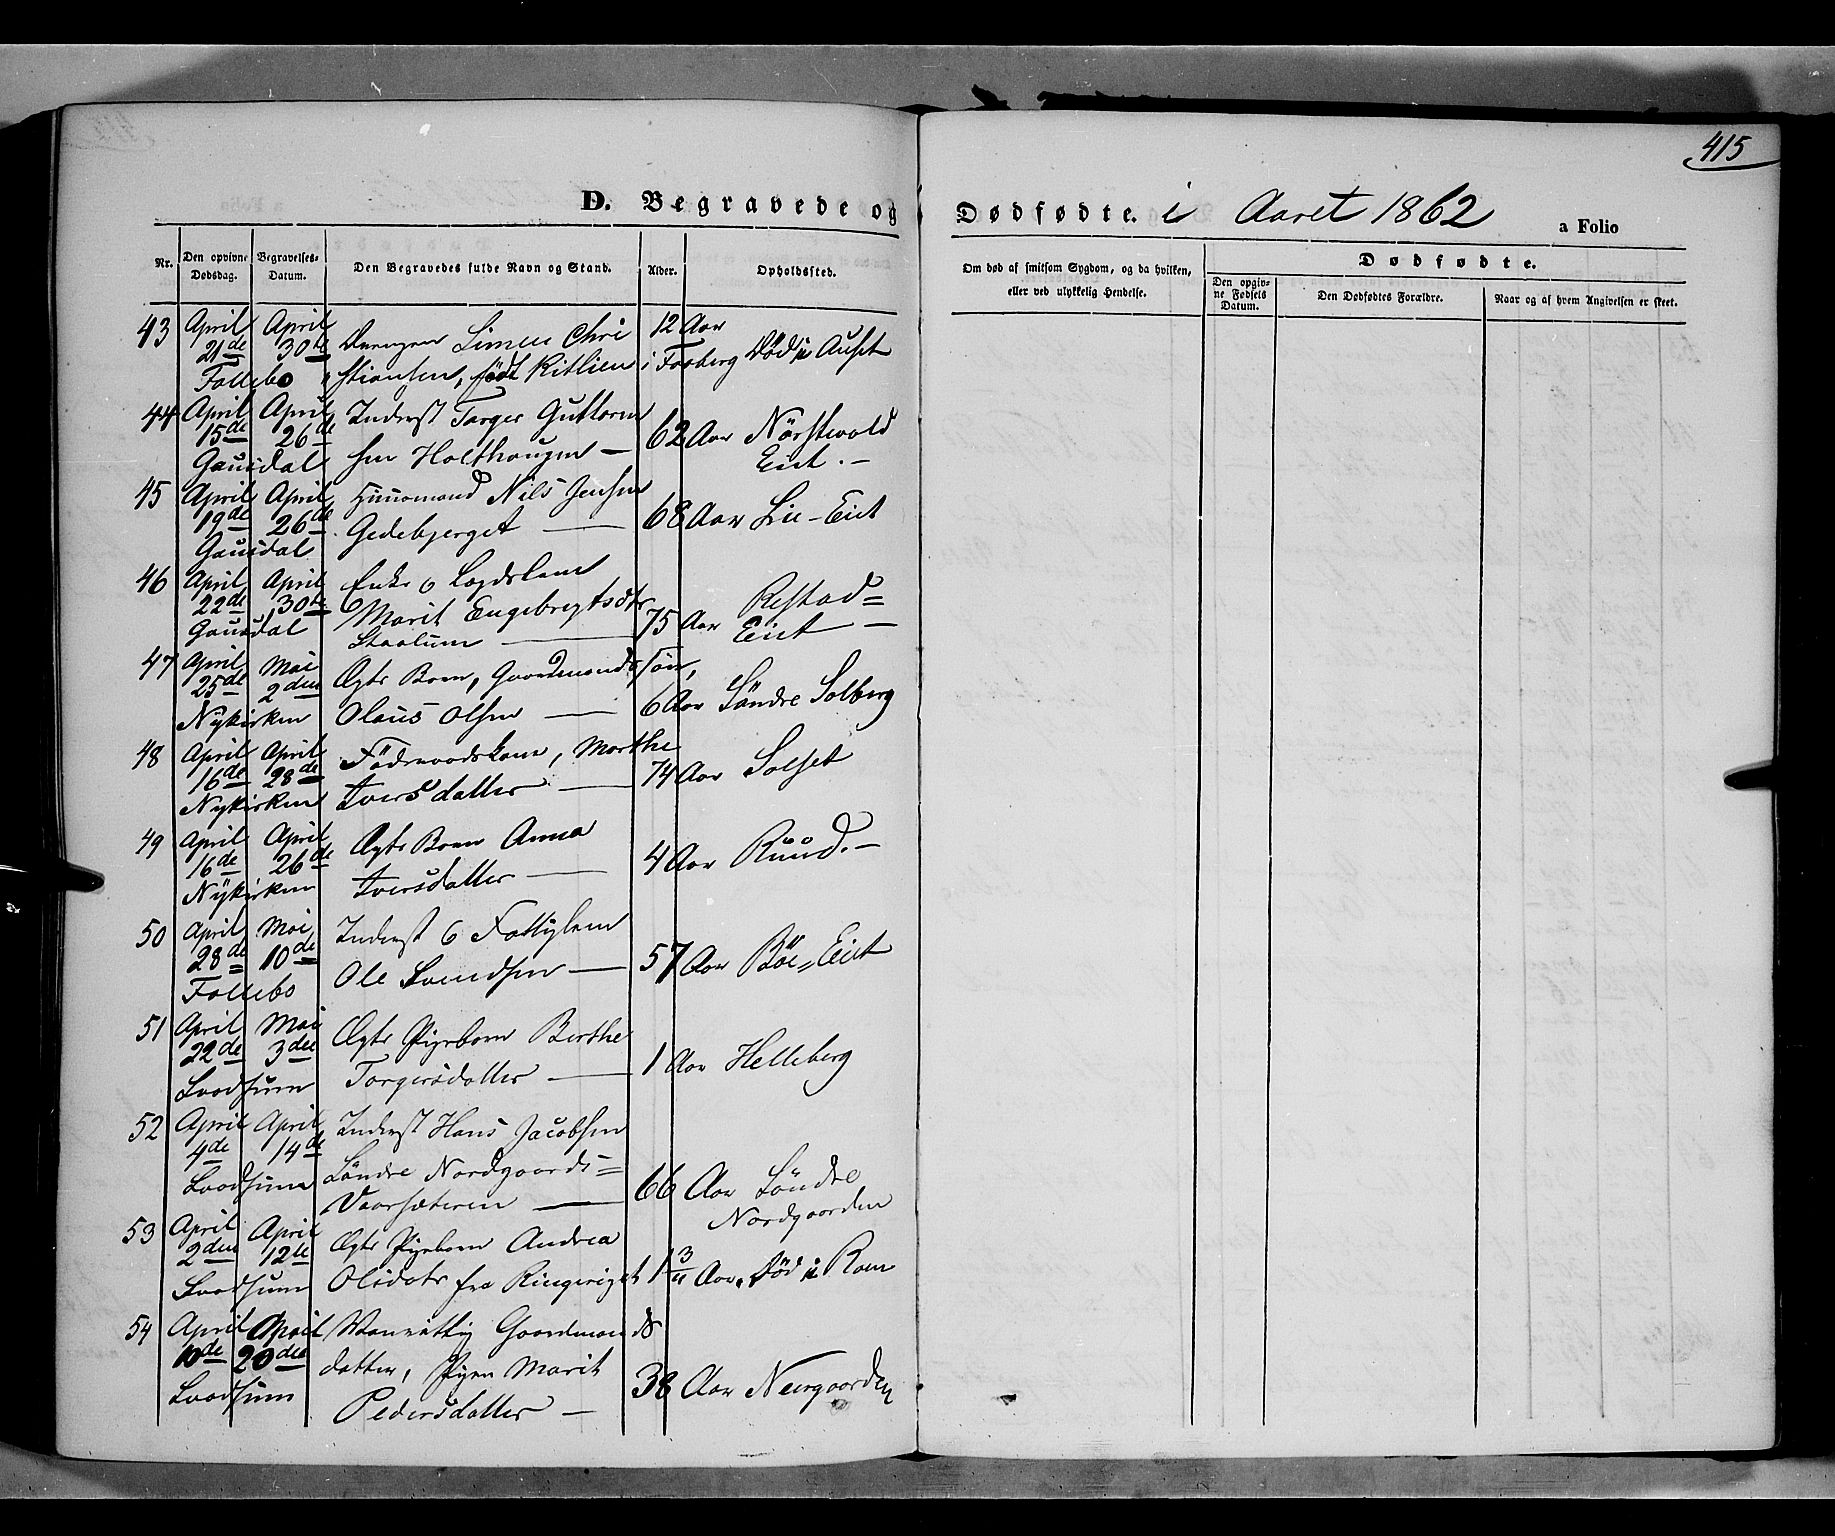 415
D. Begravede og Dødfødte. i Aaret 1862 a Folio
Nr.
Den opgivne Dødsdag.
Begravelses-Datum.
Den Begravedes fulde Navn og Stand.
Alder.
Opholdssted.
Om død af smitsom Sygdom, og da hvilken,
eller ved ulykkelig Hendelse.
Dødfødte.
Den opgiv-
ne Fødsels
Datum.
Den Dødfødtes Forældre.
Naar og af hvem Angivelsen er skeet.
43 April April Drengen Simen Chri 12 Aar
21de 30te stiansen, født Kitlien i Faaberg Død i Auset
Follebo
44 April April Inderst Torger Guttorm
15de 26de sen Holthaugen — 62 Aar Nørstevold
Gausdal Eiet. —
45 April April Huusmand Nils Jensen
19de 26de Gedebjerget — 68 Aar Lie-Eiet
Gausdal
46 April April Enke o Lægdslem
22de 30te Marit Engebregtsdtr 75 Aar Restad=
Gausdal Staalum — Eiet —
47 April Mai Ægte Barn, Gaardmands Søn,
25de 2den
Nykirken Olaus Olsen — 6 Aar Søndre Solberg
48 April April Føderaadskone, Marthe
16de 28de 74 Aar Solset
Nykirken Iversdatter —
49 April April Ægte Barn Anna
16de 26de 4 Aar Ruud. —
Nykirken Iversdatter —
50 April Mai Inderst o Fattiglem
28de 10de Ole Svendsen — 57 Aar Bøe=Eiet
Follebo
51 April Mai Ægte Pigebarn Berthe
22de 3die Torgersdatter — 1 Aar Helleberg
Svadsum
52 April April Inderst Hans Jacobsen
4de 14de Søndre Nordgaards=
Svadsum Vaarsæteren — 66 Aar Søndre
Nordgaarden
53 April April Ægte Pigebarn Andrea
2den 12te
Svadsum Olsdatr fra Ringeriget 1 3/4 Aar. Død i Roen
54 April April Vanvittig Gaardmands
10de 20de datter, Pigen Marit
Svadsum Pedersdatter — 38 Aar Neergaarden